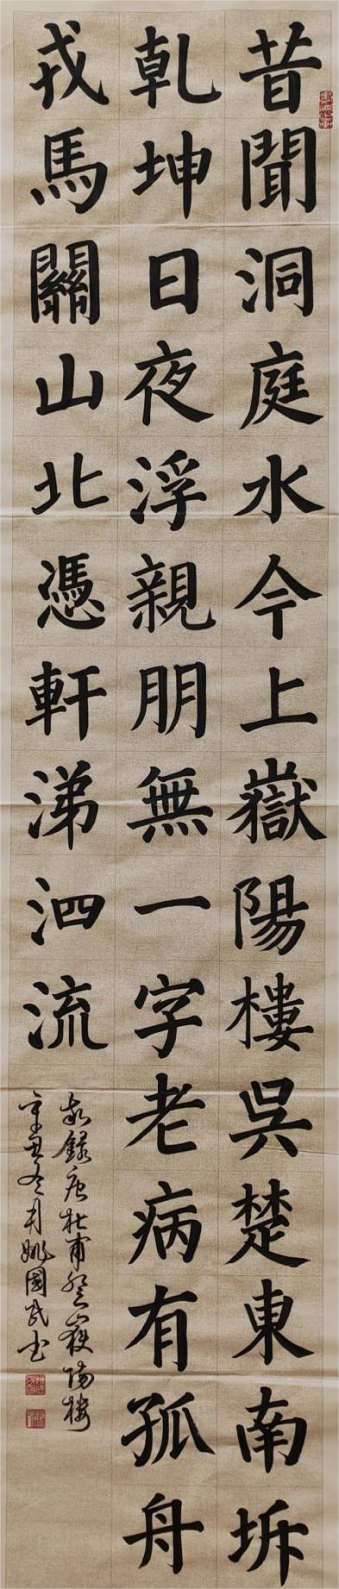 昔聞洞庭水今上嶽陽樓吳楚東南坼
乾坤日夜浮親朋無一字老病有孤舟
戎馬關山北憑軒涕泗流
敬錄唐杜甫登嶽陽樓
辛丑冬月姚國民书